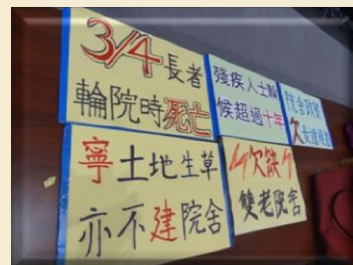 3/4長者
輪院時死亡
殘疾人士輪
候超過十年
院舍政策
欠
寧土地生草
亦不建院舍
欠缺
雙老院舍